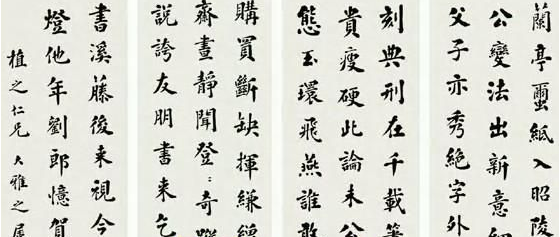 蘭亭蠒紙入昭陵
公變法出新意細
父子亦秀絕字外
刻典刑在千載筆
貴瘦硬此論未公
態玉環飛燕誰敢
購買斷缺揮縑繒
齋晝靜聞登:奇蹤
說誇友朋書來乞
書溪藤後來視今
燈他年劉郎憶賀
植之仁兄大雅之屬